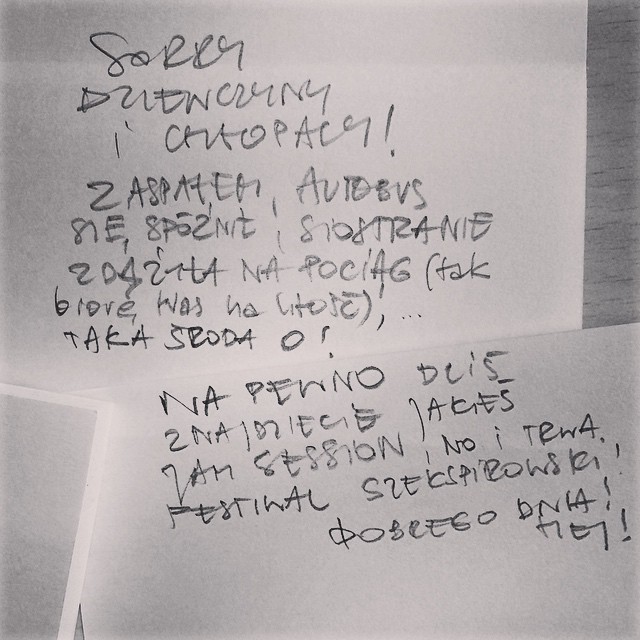 SORRY
DZIEWCZYNY
i CHŁOPACY!
ZASPAŁEM, AUTOBUS
SIĘ SPÓŹNIŁ, SIOSTRA NIE
ZDĄŻYŁA NA POCIĄG (tak
biorę Was na litość), ...
TAKA ŚRODA O!
NA PEWNO DZIŚ
ZNAJDZIECIE JAKIEŚ
JAM SESSION, NO I TRWA
FESTIWAL SZEKSPIROWSKI!
DOBREGO DNIA!
HEJ!